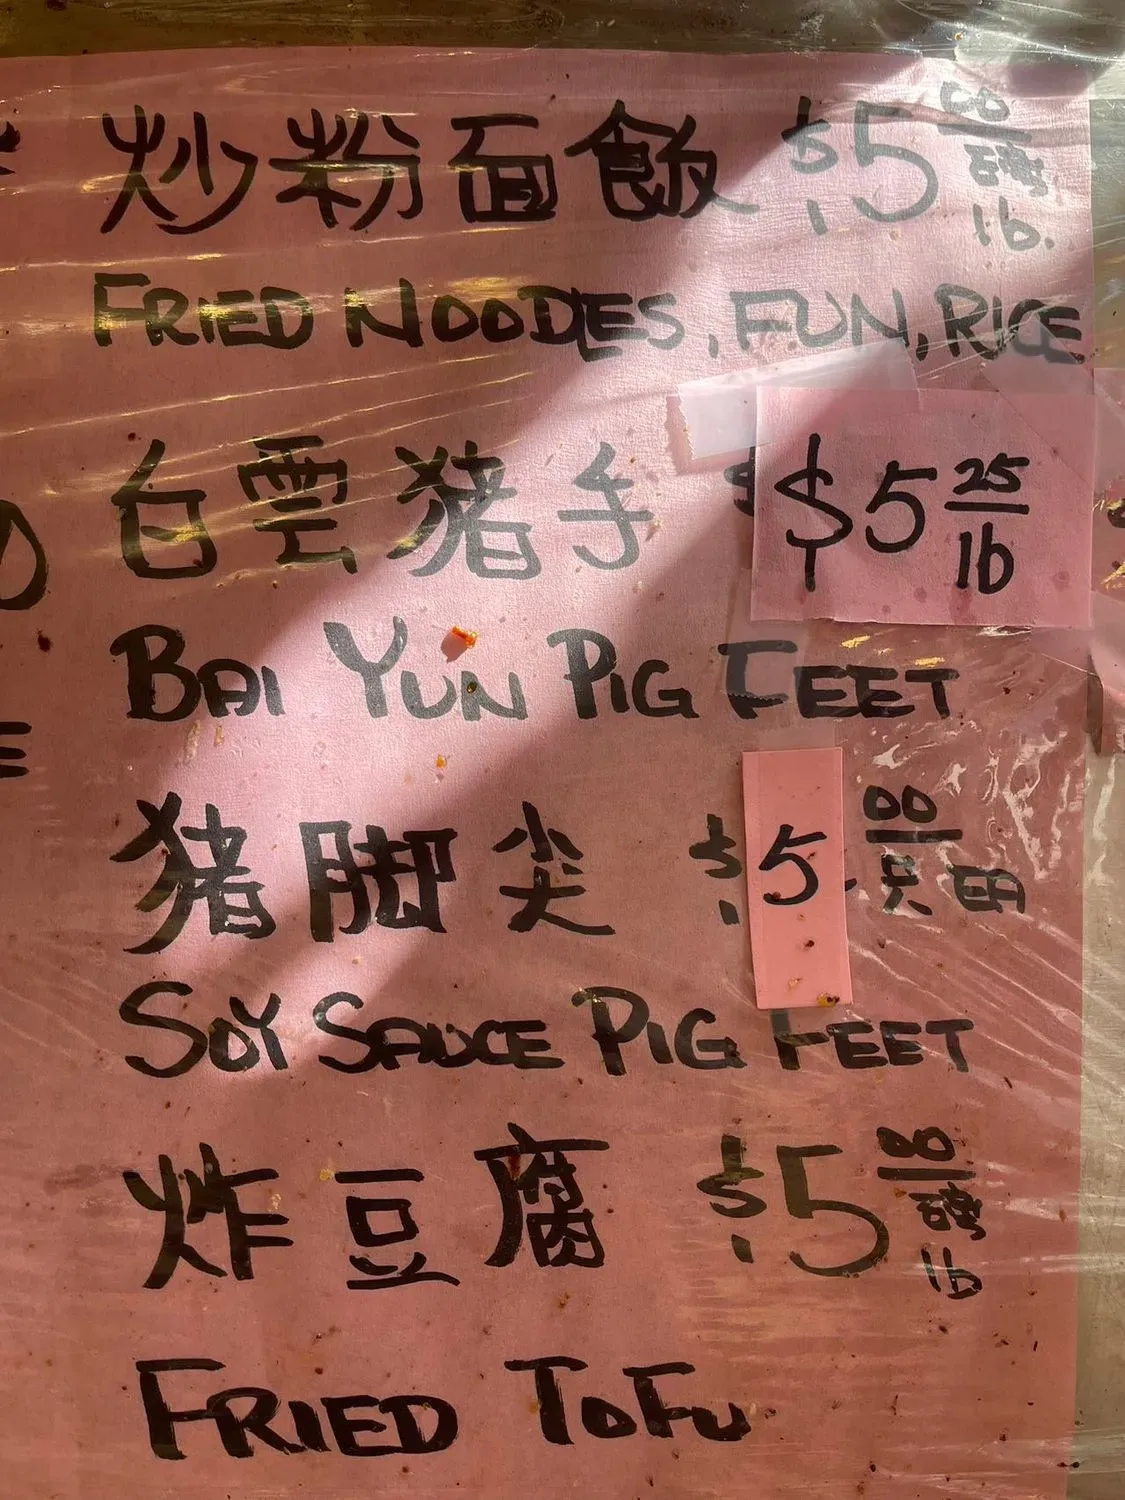 炒粉面飯 $5 00 磅 lb.
FRIED NOODLES, FUN, RICE
白雲豬手 $5 25 lb
BAI YUN PIG FEET
豬腳尖 $5 00 只
SOY SAUCE PIG FEET
炸豆腐 $5 80 磅 lb
FRIED TOFU